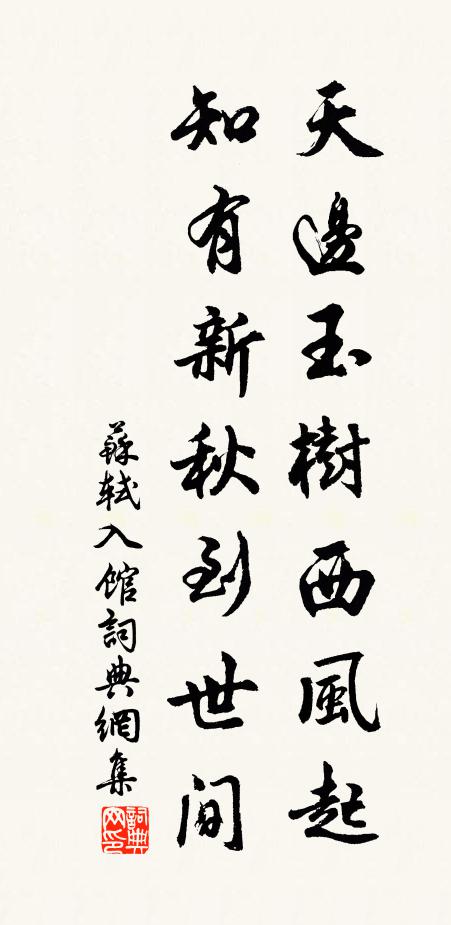 天邊玉樹西風起
知有新秋到世間
蘇軾入館詞典網集
詞典網印